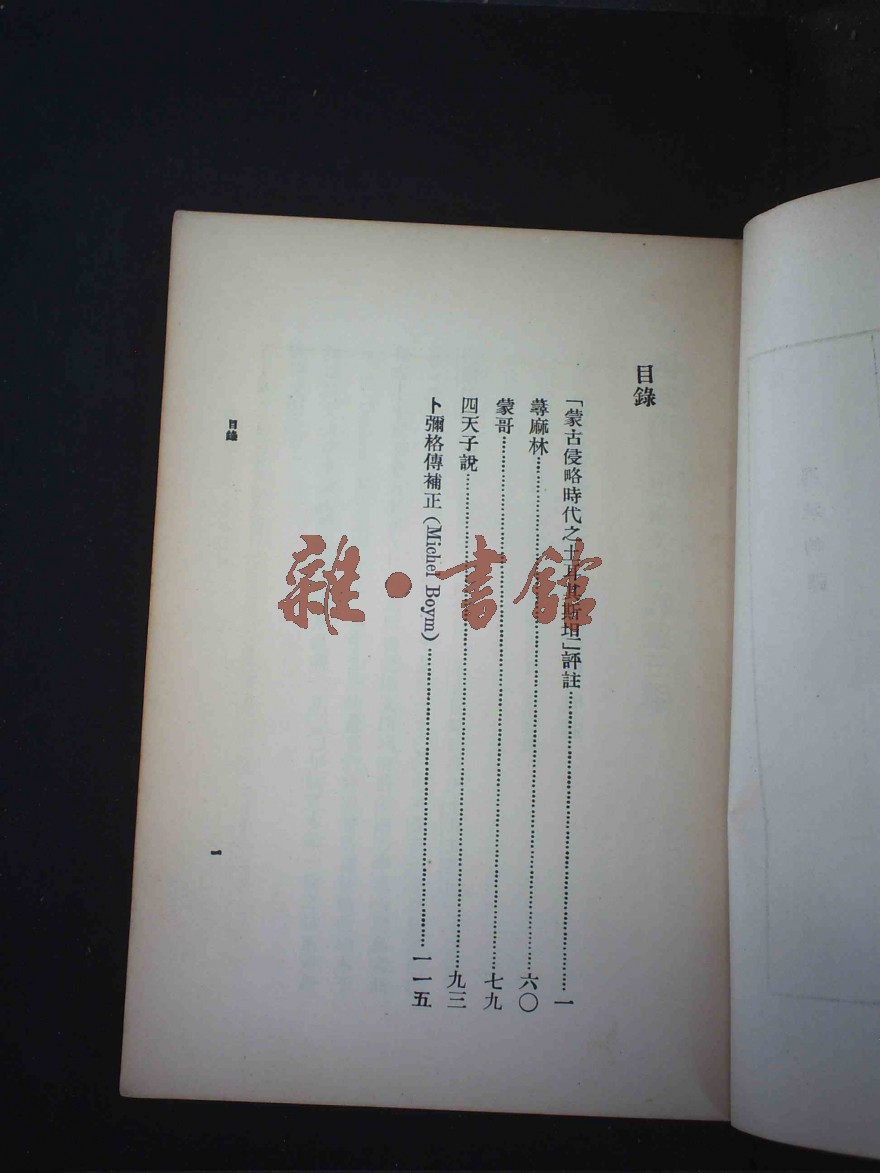 目錄
「蒙古侵略時代之土耳其斯坦」評註……一
蕁麻林……六〇
蒙哥……七九
四天子說……九三
卜彌格傳補正(Michel Boym)……一一五
目錄
一
雜·書館